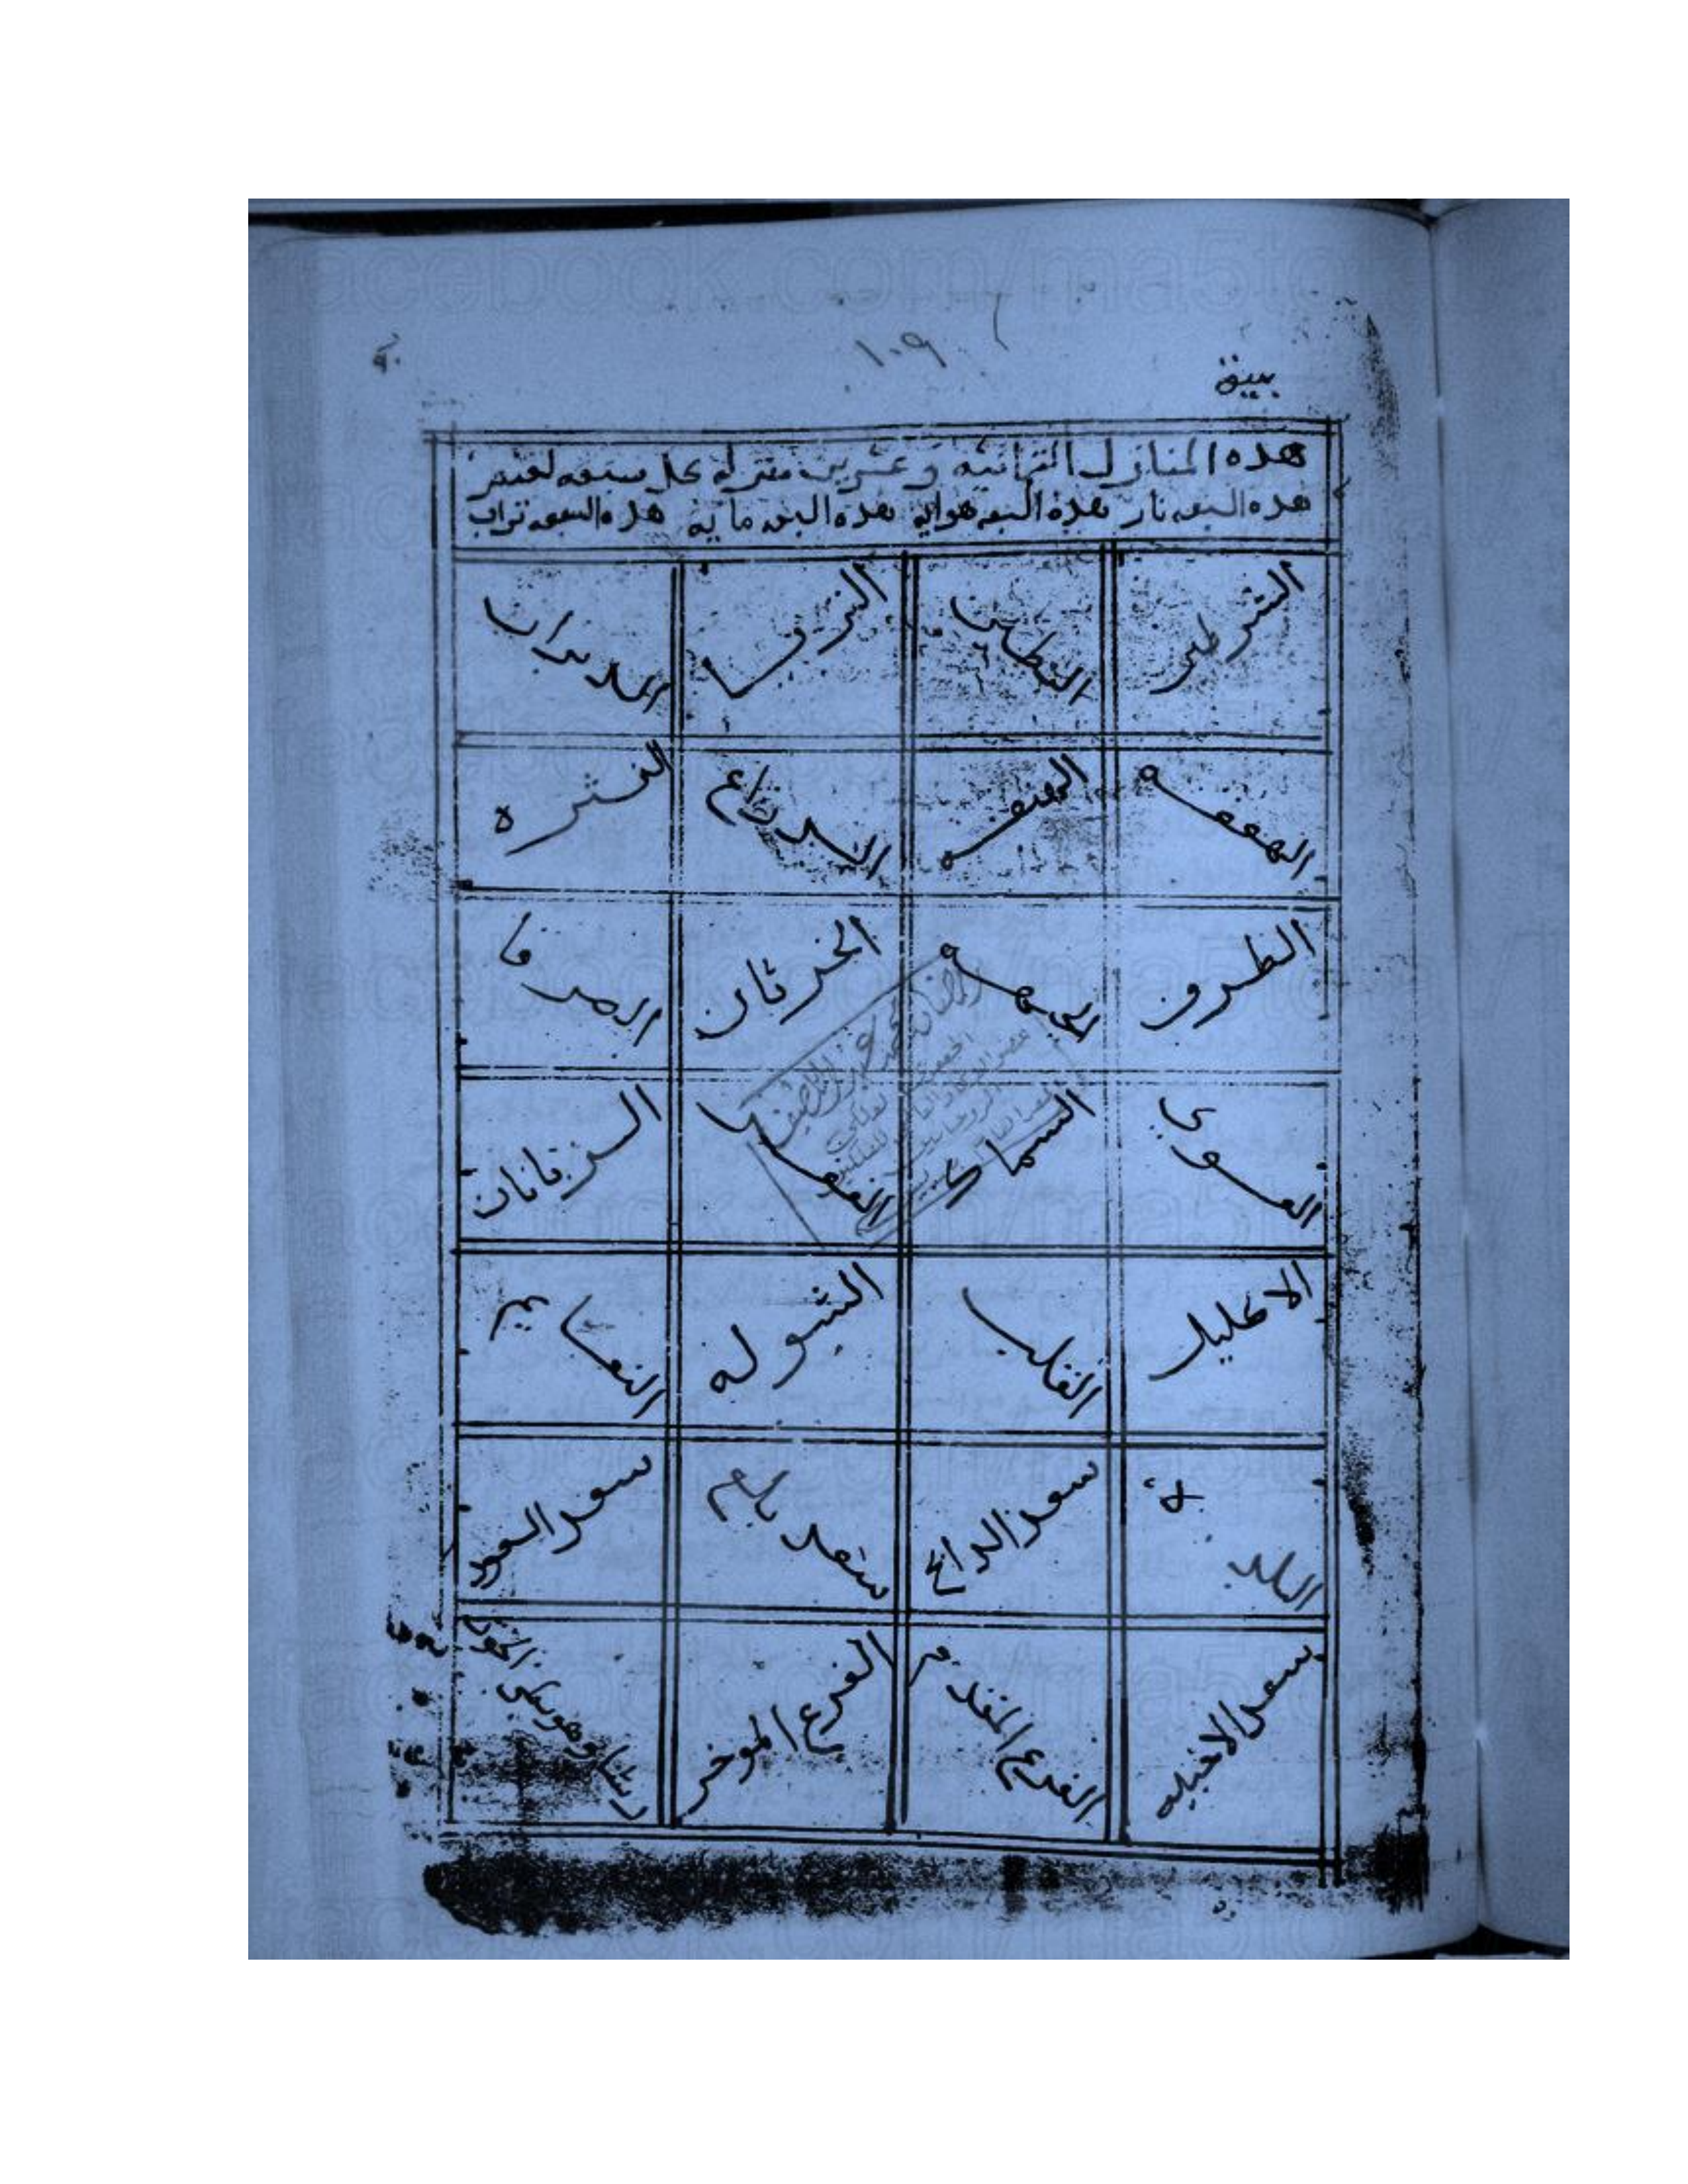 ١٠٩
هذه المنازل الثمانيه وعشرين منزله كل سبعه لعنصر
هذه السبعه نار هذه السبعه هوائيه هذه السبعه مائيه هذه السبعه تراب
الشرطين البطين الثريا الدبران
الهقعه الهنعه الدراع النثره
الطرف الجبهه الخرثان الصرفا
العوى السماك الغفر الزبانان
الاكليل القلب الشوله النعايم
البلده سعد الدابح سعد بلع سعد السعود
سعد الاخبيه الفرع المقدم الفرع الموخر رشا وهو بطن الحوت
facebook.com/ma5to